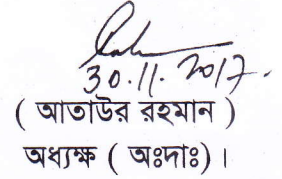 30.11.2017.
( আতাউর রহমান )
অধ্যক্ষ ( অঃদাঃ) ।